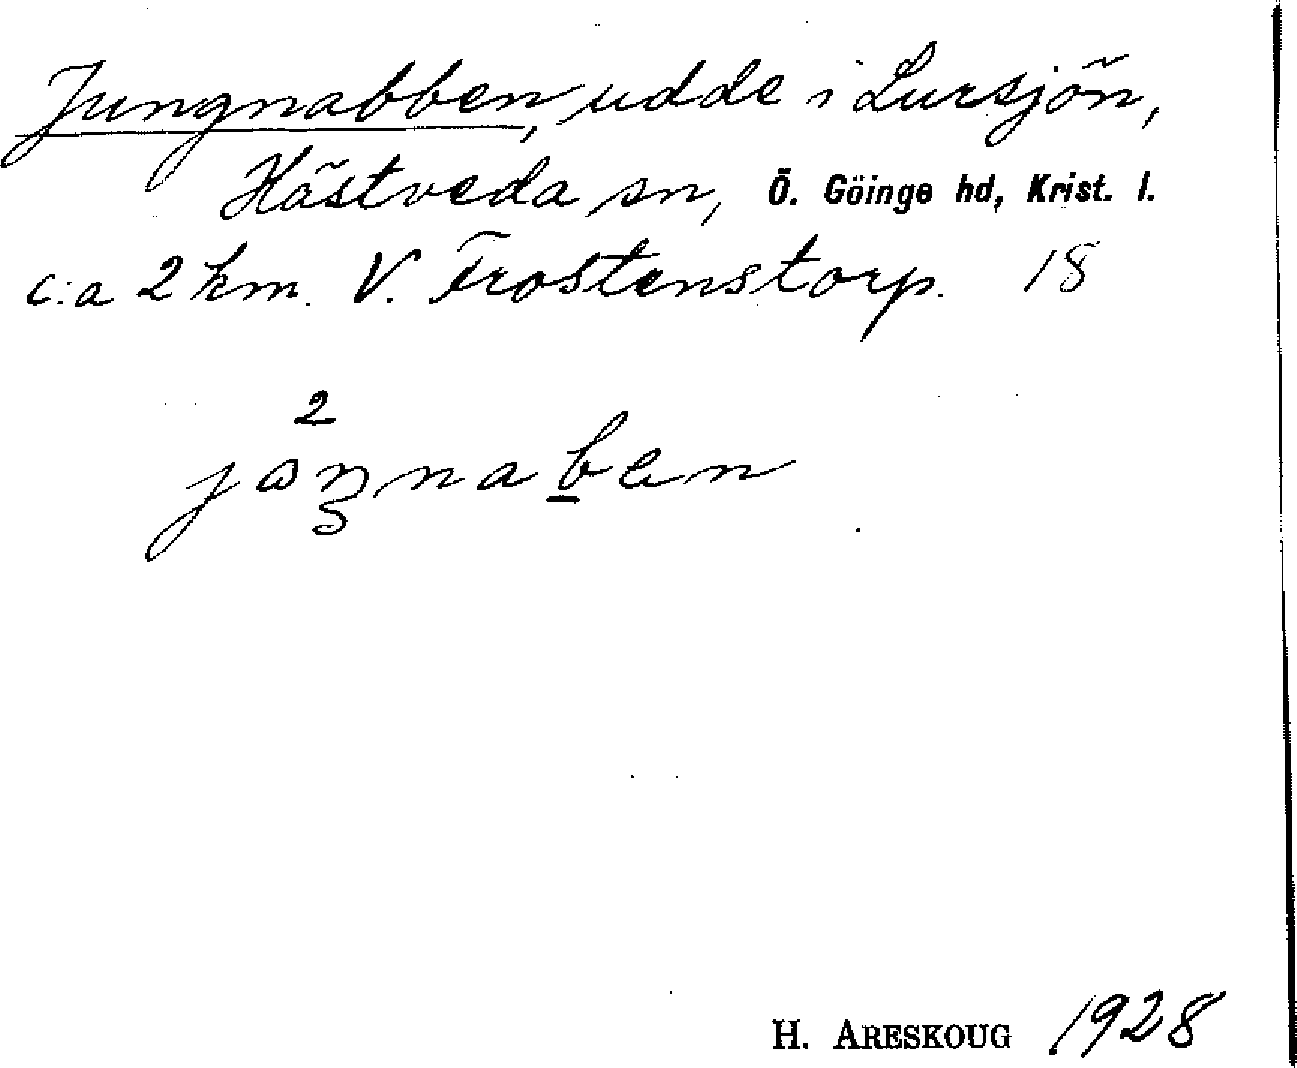 Jungnabben, udde i Lursjön,
Hästveda sn, Ö. Göinge hd, Krist. l.
c:a 2 km. V. Frostenstorp. 18
2
H. ARESKOUG 1928